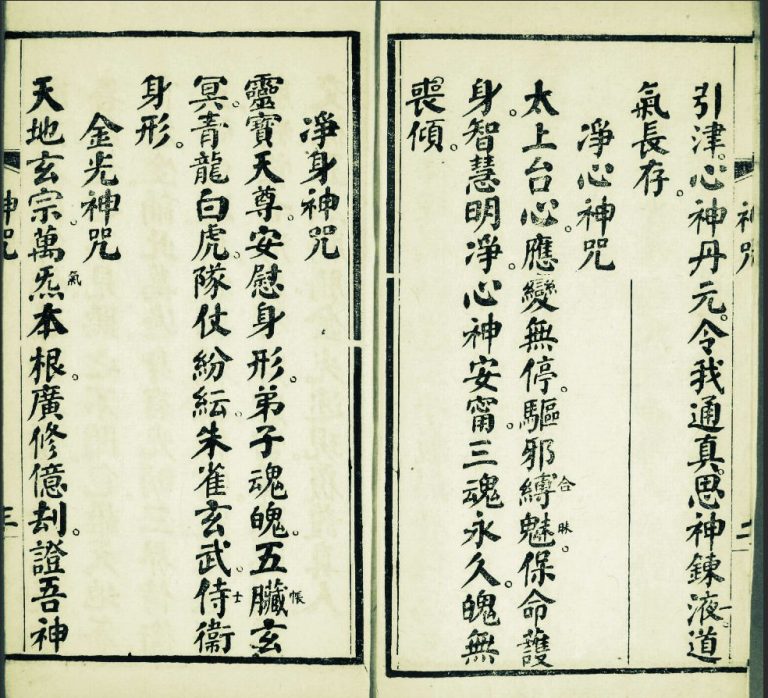 引津。心神丹元。令我通真。思神鍊液。道
氣長存。
神咒
二
凈心神咒
太上台心。應變無停。驅邪縛合魅昧。保命護
身。智慧明凈。心神安甯。三魂永久。魄無
喪傾。
凈身神咒
靈寶天尊。安慰身形。弟子魂魄。五臟帳玄
冥。青龍白虎。隊仗紛紜。朱雀玄武。侍士衞
身形。
金光神咒
天地玄宗。萬炁氣本根。廣修億刦。證吾神
神咒
三